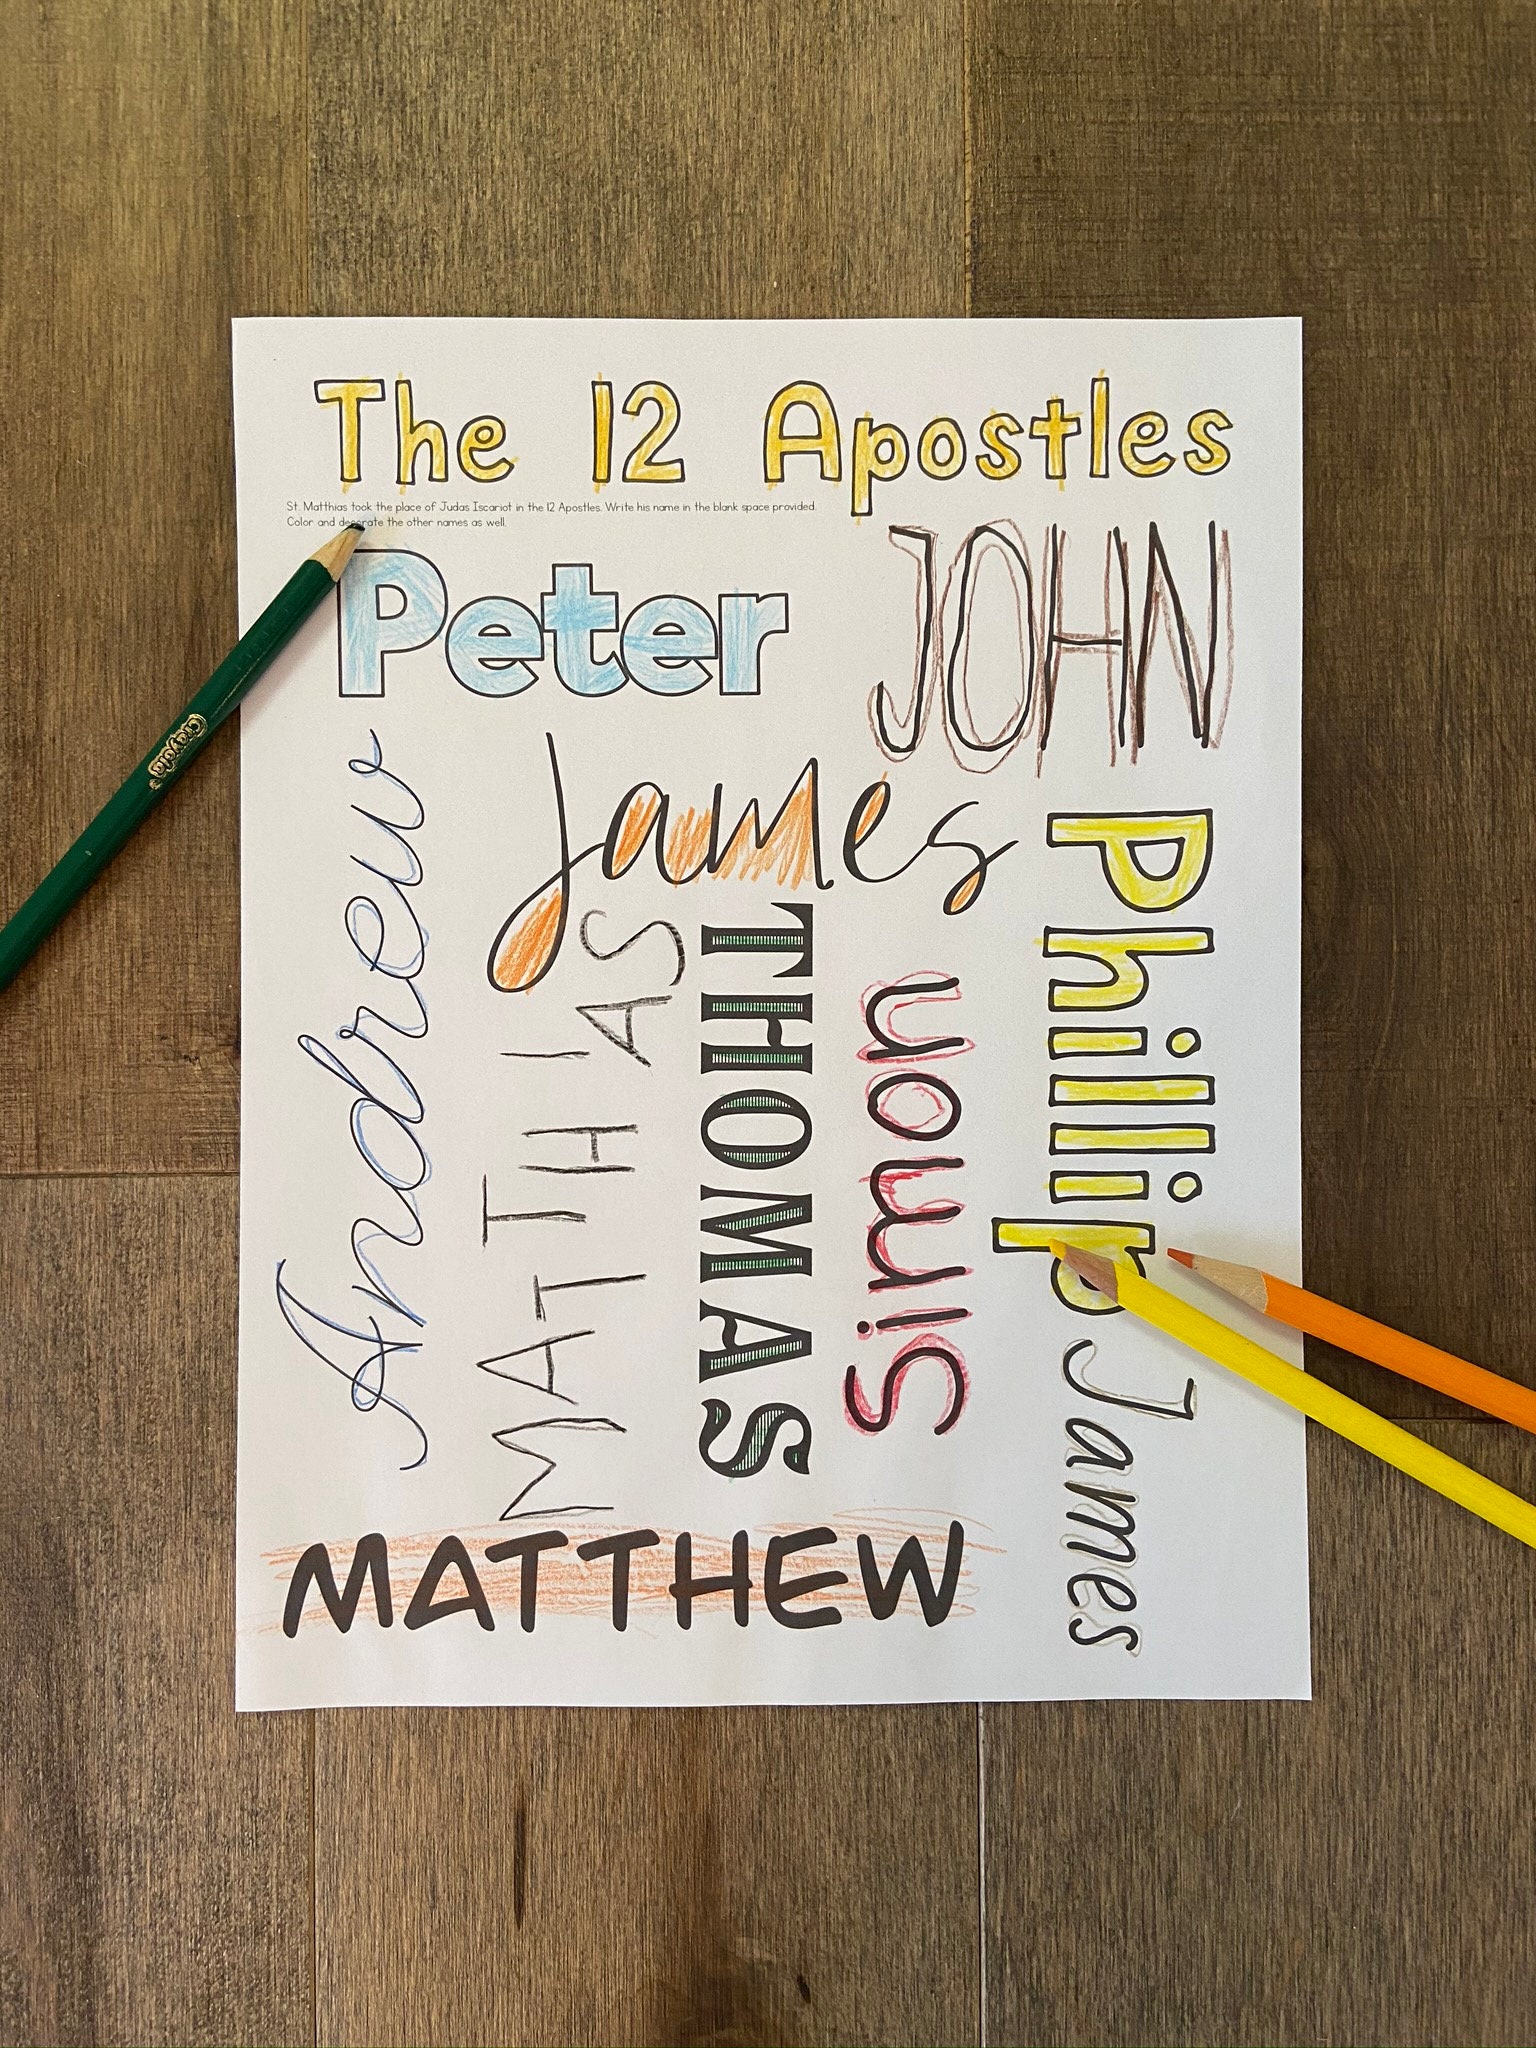 The 12 Apostles
St. Matthias took the place of Judas Iscariot in the 12 Apostles. Write his name in the blank space provided.
Color and decorate the other names as well.
Peter
JOHN
Andrew
James
MATTHIAS
THOMAS
Simon
Phillip
James
MATTHEW
Crayola